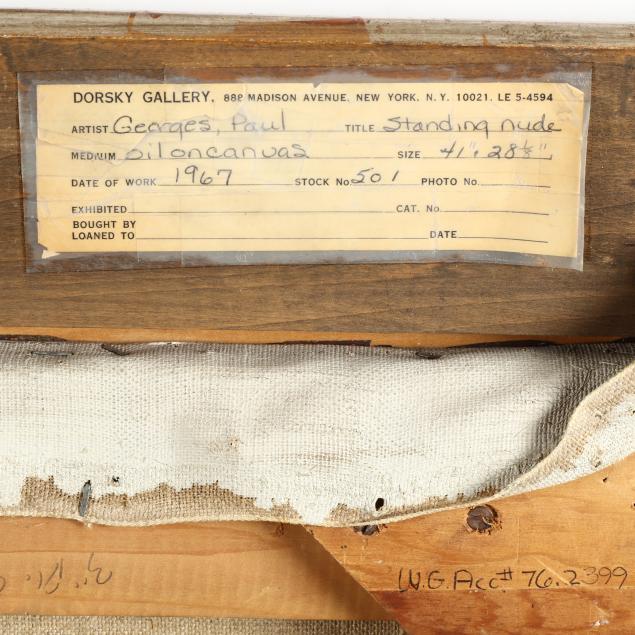 DORSKY GALLERY, 888 MADISON AVENUE, NEW YORK, N. Y. 10021. LE 5-4594
ARTIST Georges, Paul TITLE Standing nude
MEDIUM oil on canvas SIZE 41" x 28 1/8"
DATE OF WORK 1967 STOCK No. 501 PHOTO No.
EXHIBITED CAT. No.
BOUGHT BY
LOANED TO DATE
W.G. Acc# 76.2399